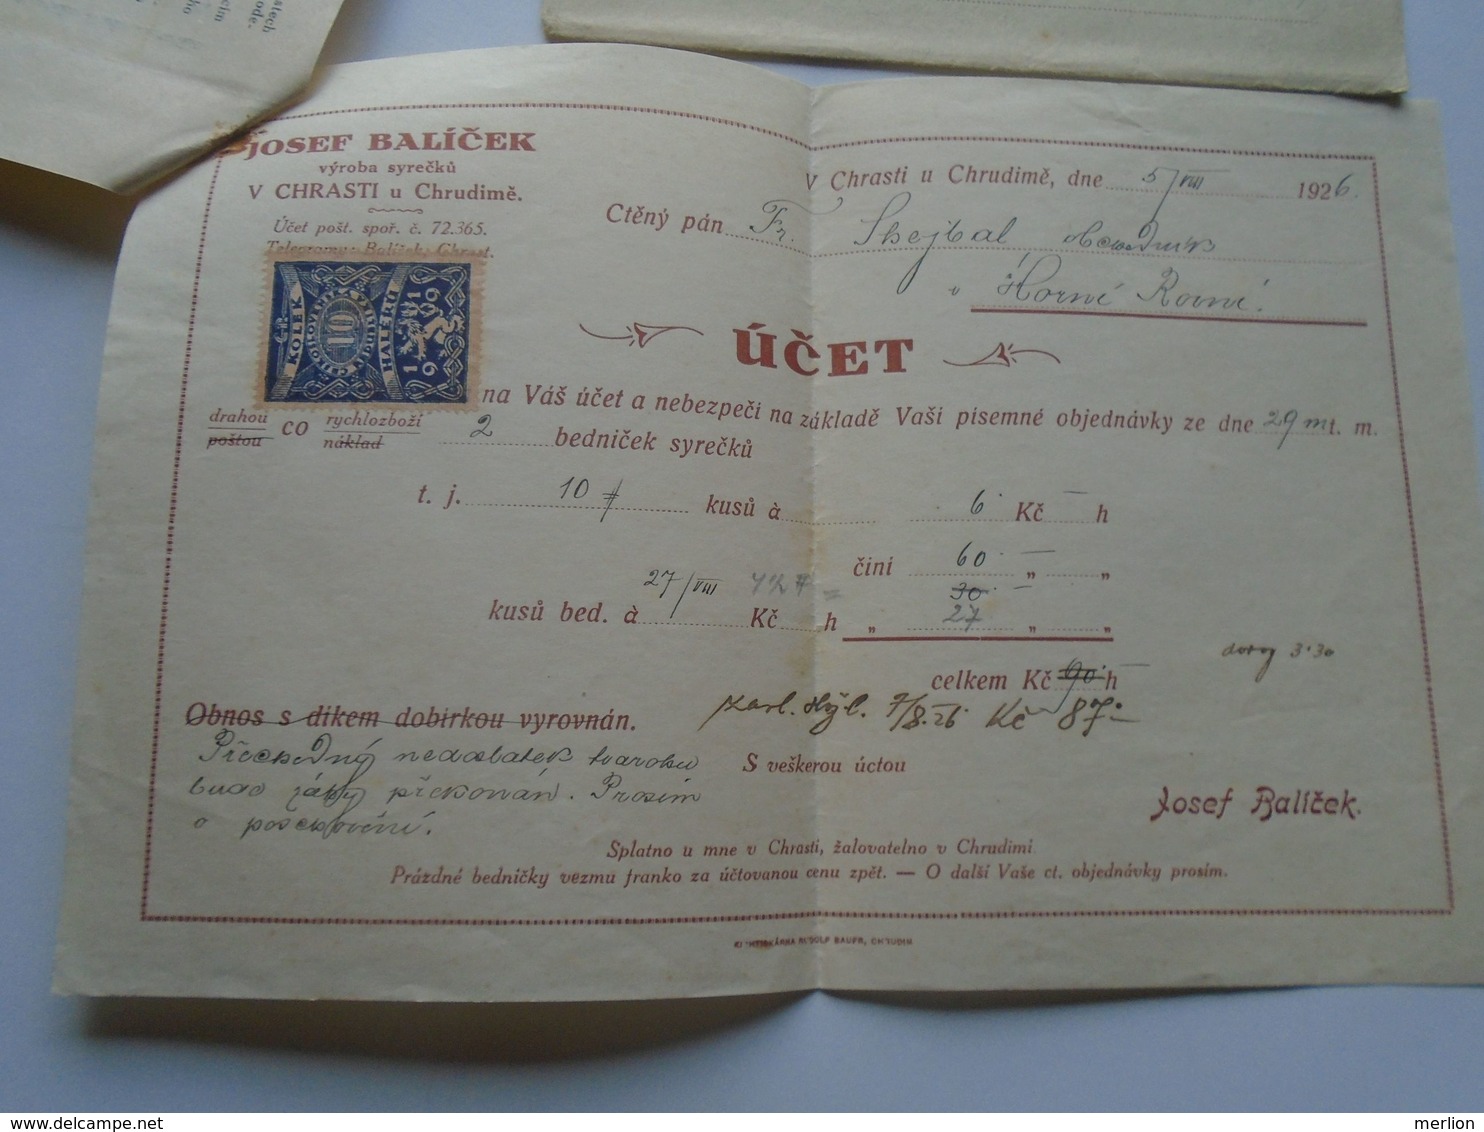 stech
cím
ho
ode.
JOSEF BALÍČEK
výroba syrečků
V CHRASTI u Chrudimě.
Účet pošt. spoř. č. 72.365.
Telegramy: Balíček, Chrast.
V Chrasti u Chrudimě, dne 5/VIII 1926.
Ctěný pán Fr. Shejbal, obchodník
v Horní Rovni.
KOLEK
ČESKOSLOVENSKÁ REPUBLIKA
10
HALÉŘŮ
1919
ÚČET
na Váš účet a nebezpečí na základě Vaší písemné objednávky ze dne 29 m t. m.
drahou co rychlozboží 2 bedniček syrečků
poštou náklad
t. j. 10 kusů à 6 Kč — h
činí 60 „ — „
27/VIII 30 —
kusů bed. à Kč h „ 27 „ „
3·30
celkem Kč 90 h —
Obnos s díkem dobírkou vyrovnán. 7/8.26 Kč 87·–
Přechodný nedostatek tvarohu
bude záhy překonán. Prosím
o poshovění.
S veškerou úctou
Josef Balíček.
Splatno u mne v Chrasti, žalovatelno v Chrudimi.
Prázdné bedničky vezmu franko za účtovanou cenu zpět. — O další Vaše ct. objednávky prosím.
KNIHTISKÁRNA RUDOLF BAUER, CHRUDIM
merlion